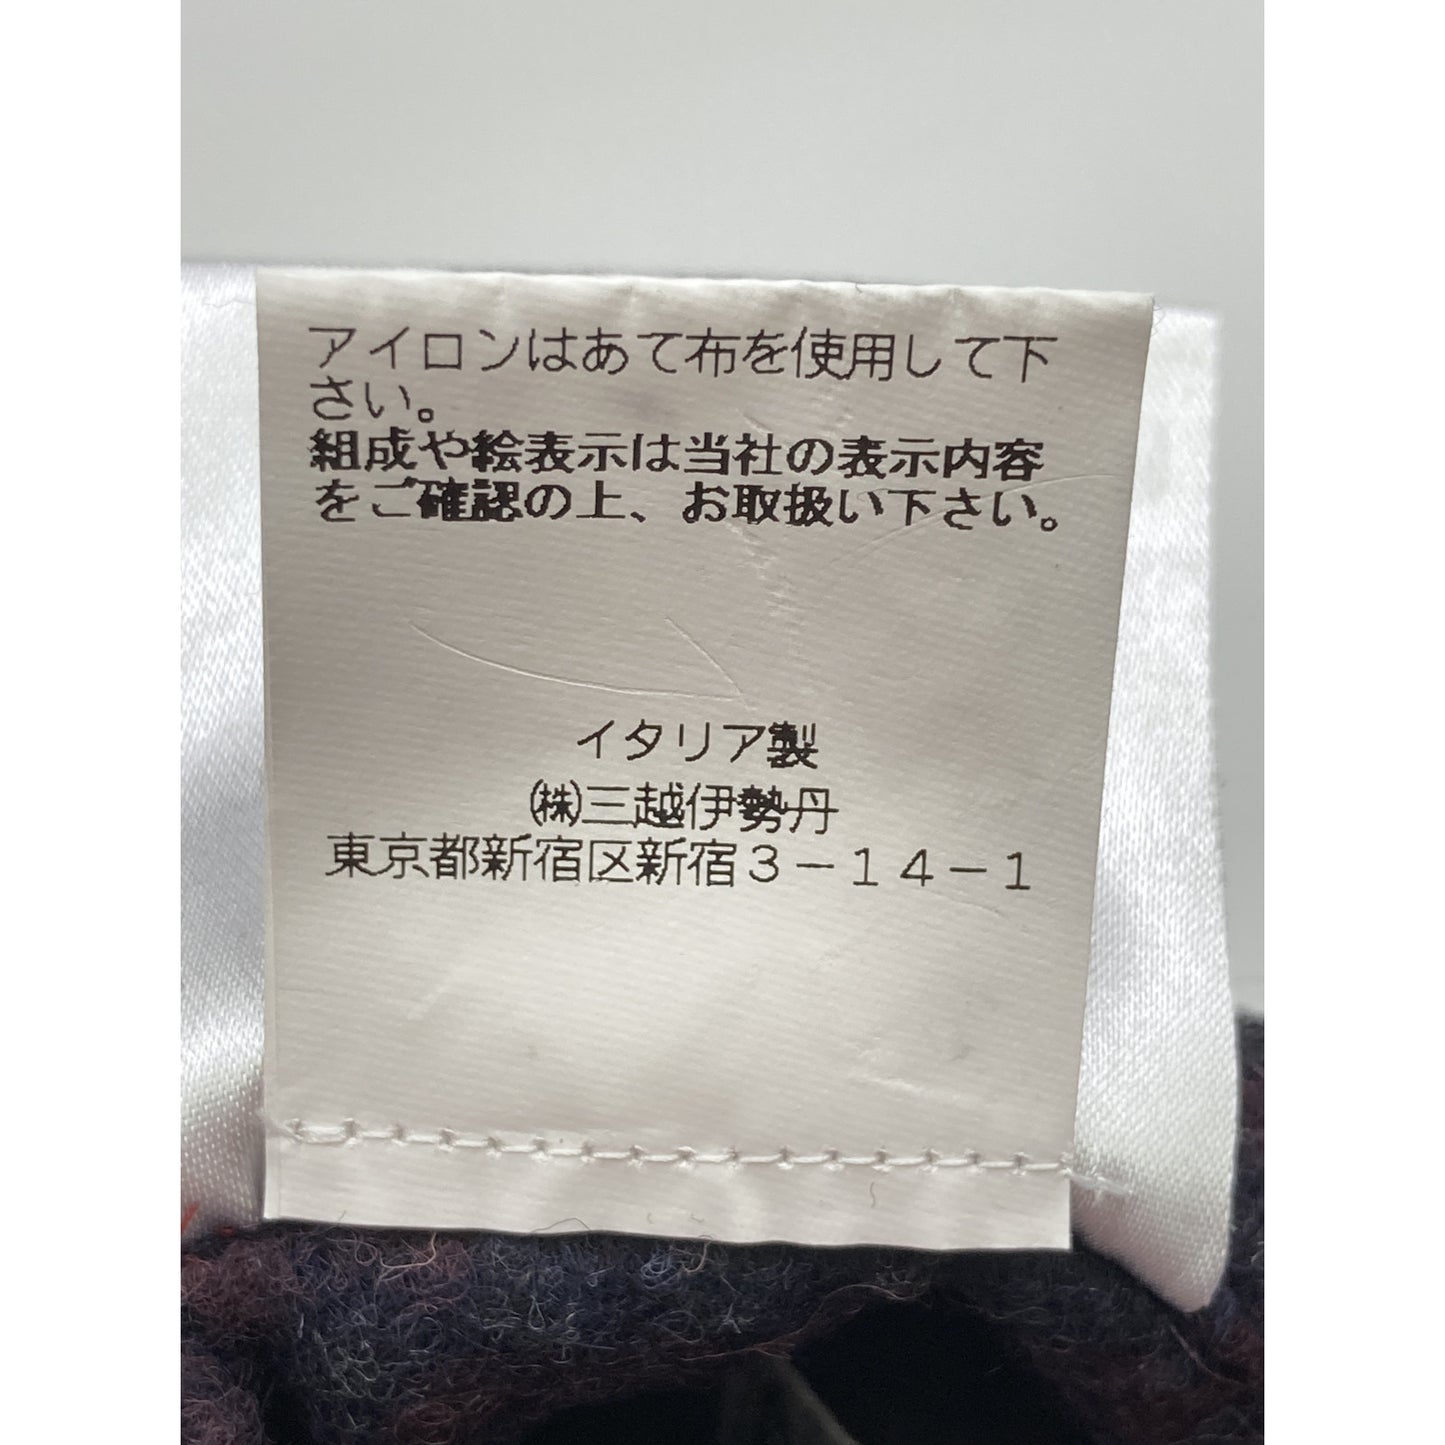 アイロンはあて布を使用して下
さい。
組成や絵表示は当社の表示内容
をご確認の上、お取扱い下さい。
イタリア製
㈱三越伊勢丹
東京都新宿区新宿3－14－1